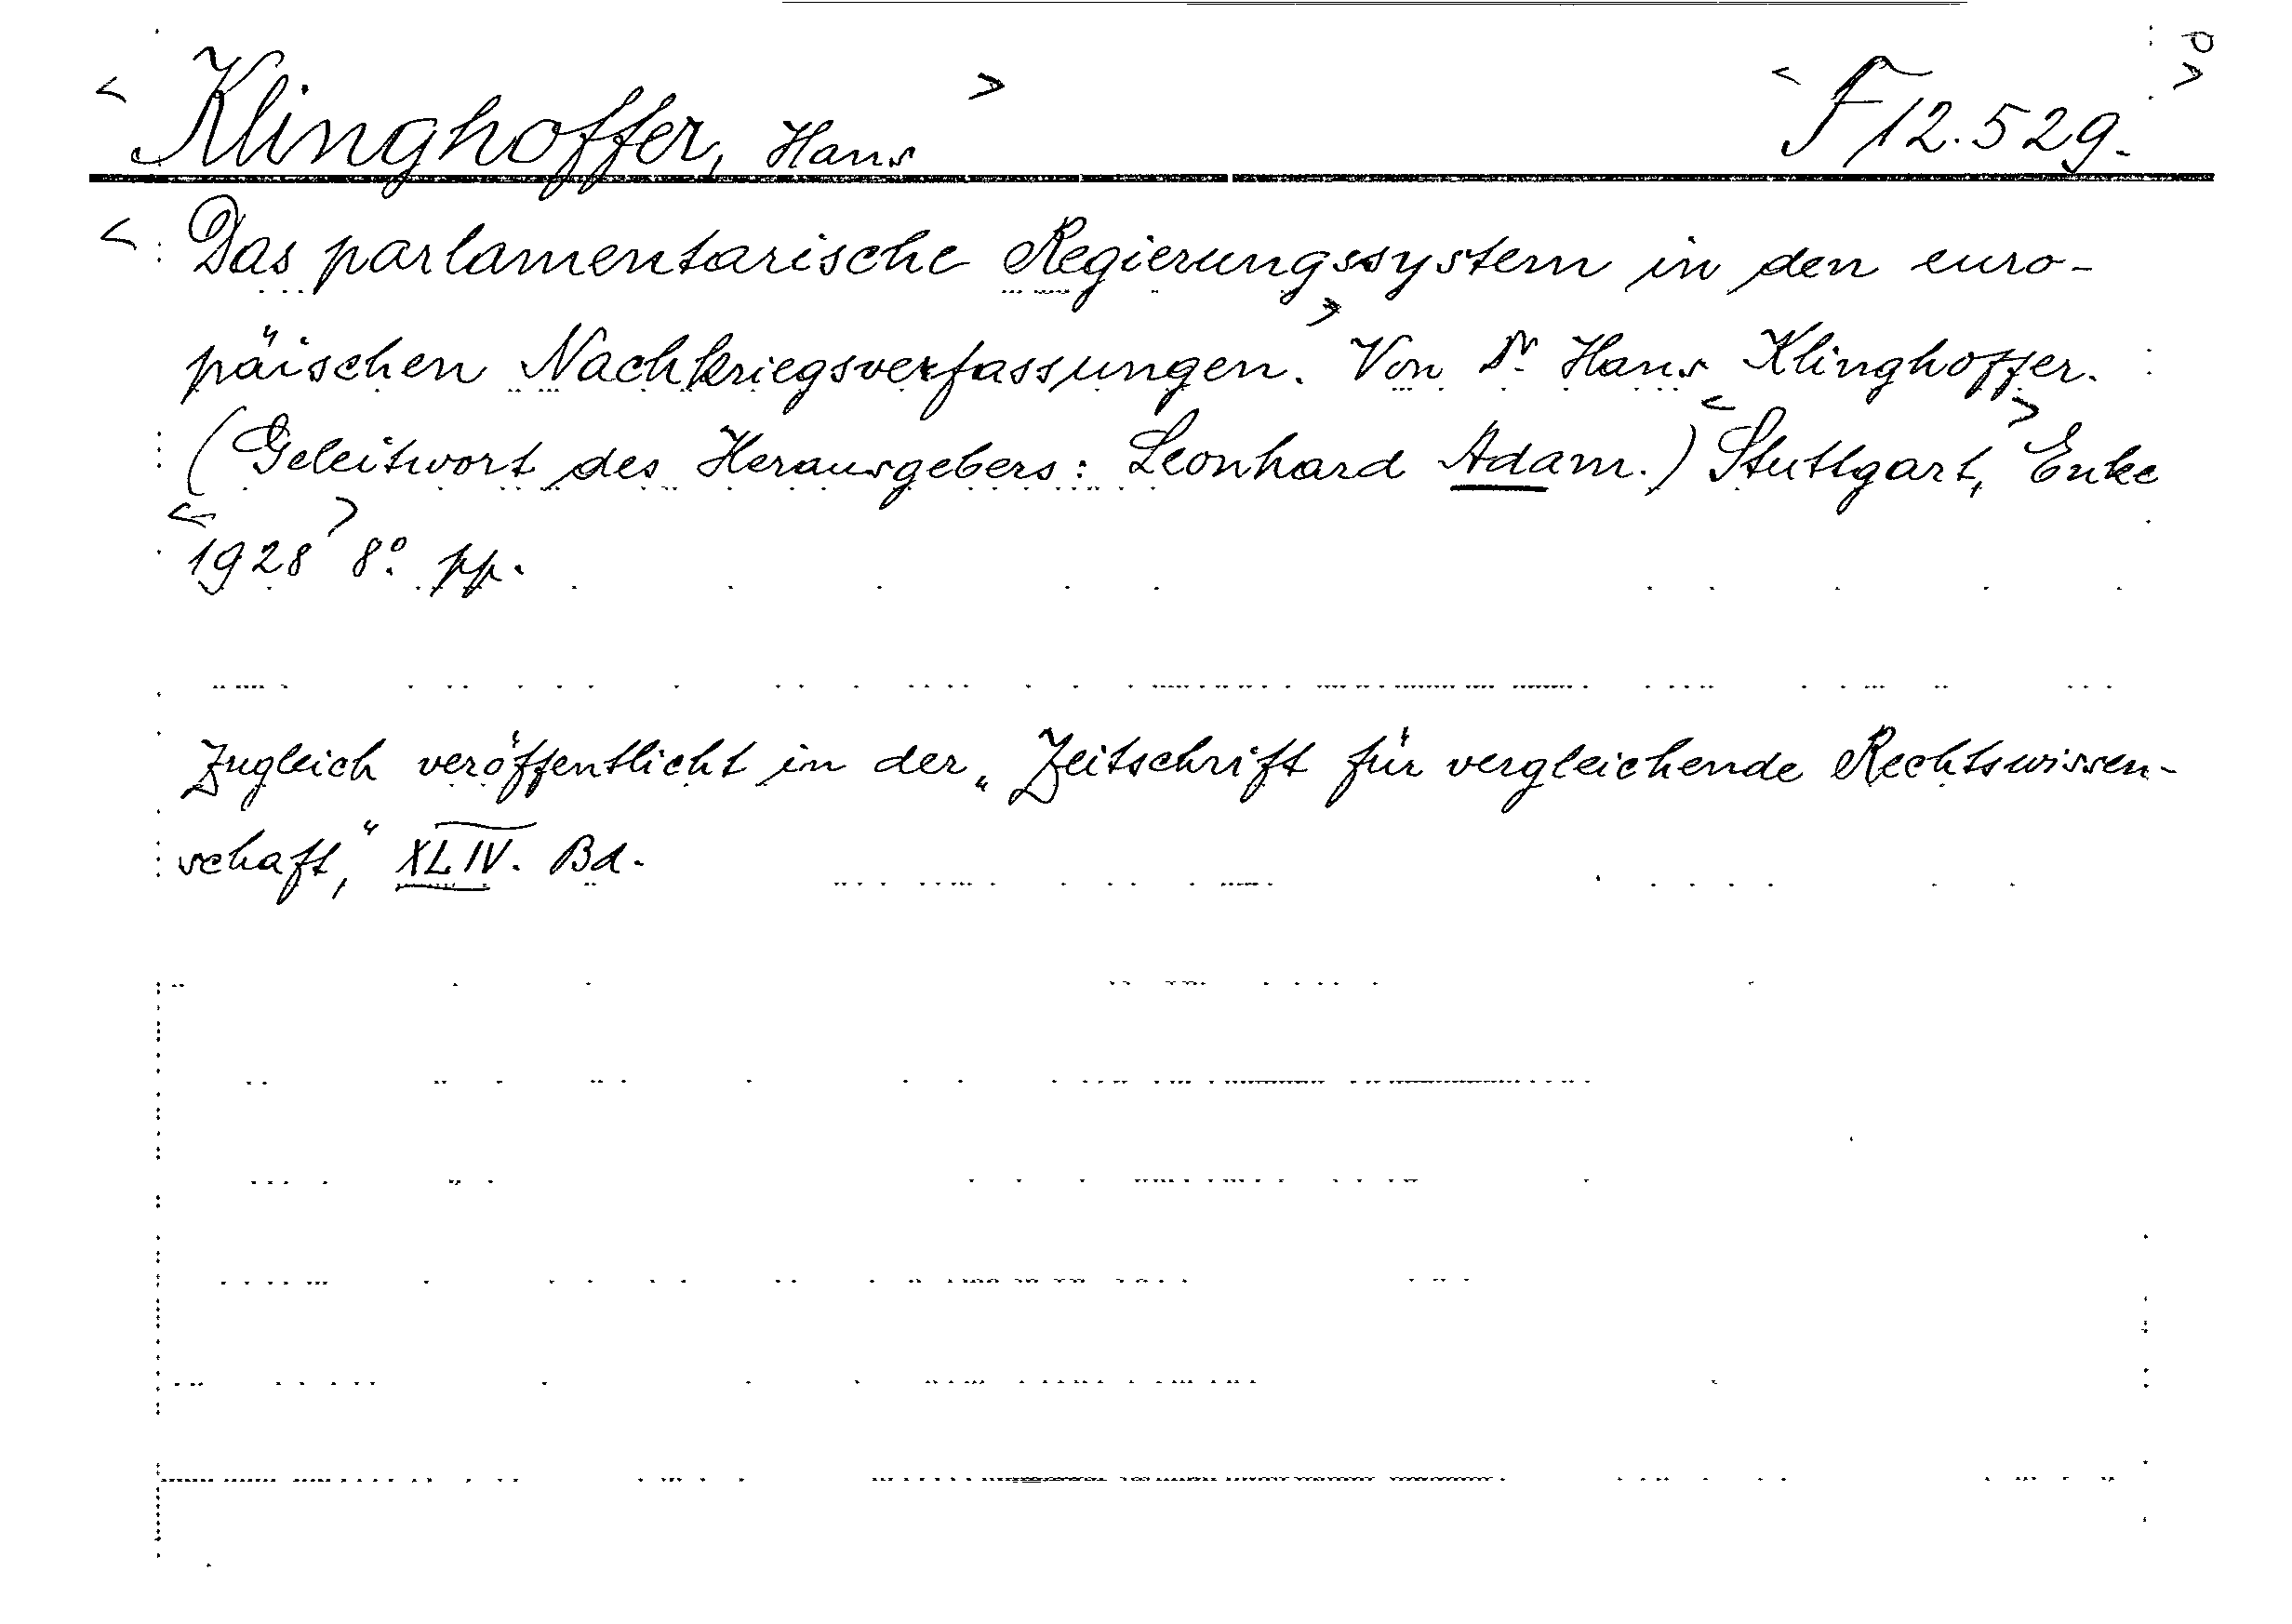 < Klinghoffer, Hans > < F 12.529. >
< Das parlamentarische Regierungssystem in den euro-
päischen Nachkriegsverfassungen.> Von Dr. Hans Klinghoffer.
(Geleitwort des Herausgebers: Leonhard Adam.) <Stuttgart,> Enke
<1928> 8°. pp.
Zugleich veröffentlicht in der „Zeitschrift für vergleichende Rechtswissen-
schaft,“ XLIV. Bd.